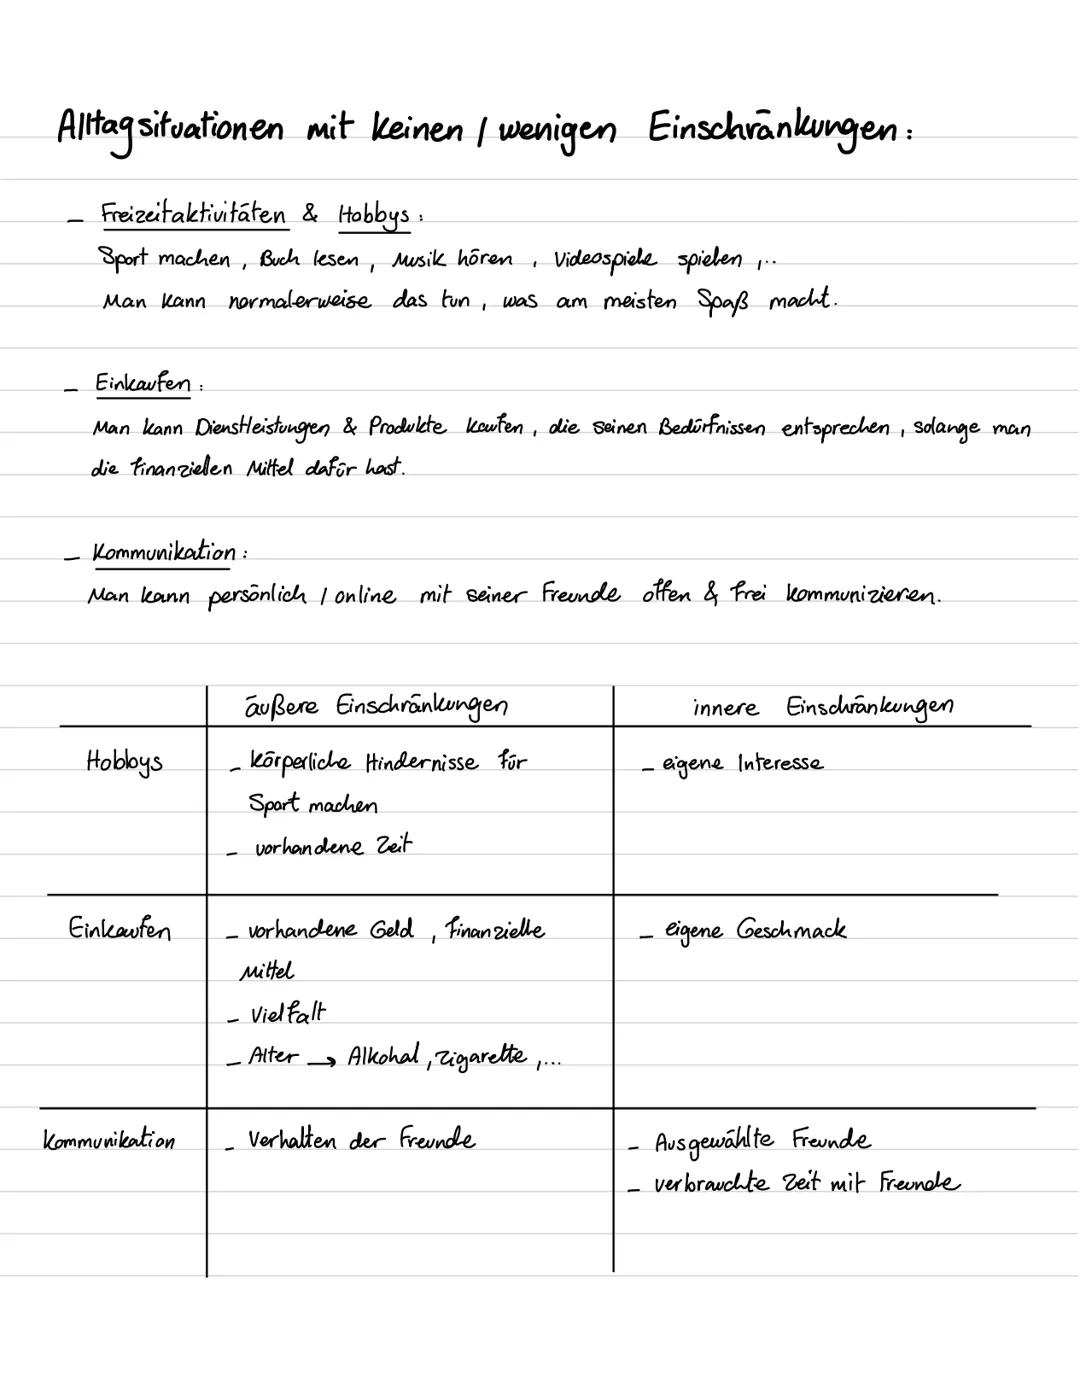 Alltagsituationen mit keinen / wenigen Einschränkungen:
- Freizeitaktivitäten & Hobbys:
Sport machen, Buch lesen, Musik hören, Videospiele spielen,..
Man kann normalerweise das tun, was am meisten Spaß macht.
- Einkaufen:
Man kann Dienstleistungen & Produkte kaufen, die seinen Bedürfnissen entsprechen, solange man
die finanziellen Mittel dafür hast.
- Kommunikation:
Man kann persönlich / online mit seiner Freunde offen & frei kommunizieren.
äußere Einschränkungen
innere Einschränkungen
Hobbys
- körperliche Hindernisse für
Sport machen
- vorhandene Zeit
- eigene Interesse
Einkaufen
- vorhandene Geld, finanzielle
Mittel
- Vielfalt
- Alter → Alkohal, Zigarette,...
- eigene Geschmack
Kommunikation
- Verhalten der Freunde
- Ausgewählte Freunde
- verbrauchte Zeit mit Freunde